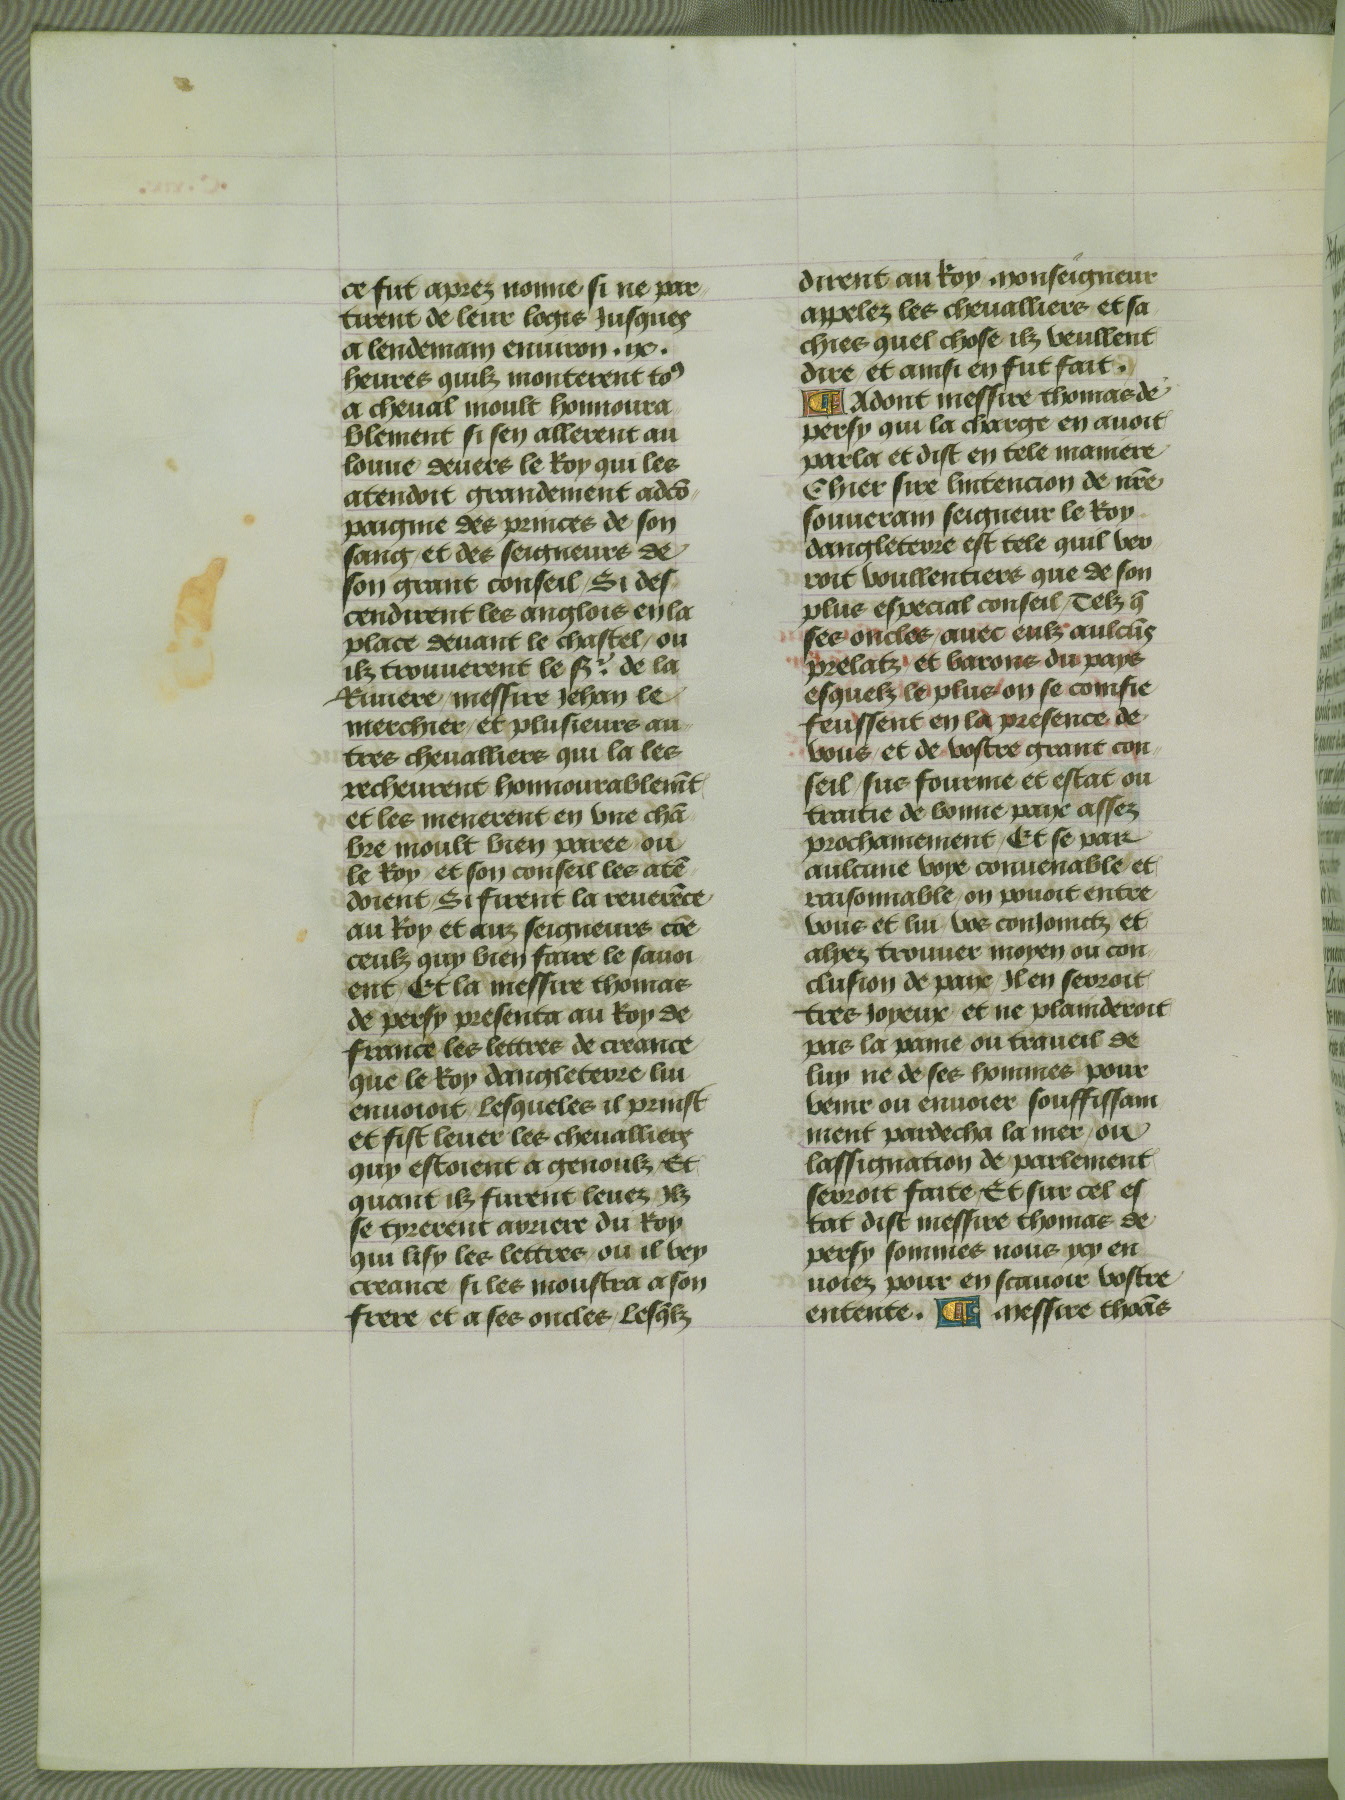 ce fut aprez nonne si ne par-
tirent de leur logis Jusques
a lendemain enuiron .ix.
heures quilz monterent to9
a cheual moult honnoura
blement si sen allerent au
louure deuers le Roy qui les
atendoit grandement adcō-
paignie des princes de son
sang et des seigneurs de
son grant conseil / Si des
cendirent les anglois en la
place deuant le chastel / ou
ilz trouuerent le sr. de la
Riuiere / messire Jehan le
merchier / et plusieurs au-
tres cheualliers qui la les
recheurent honnourablemēt
et les menerent en vne chā
bre moult bien paree ou
le Roy et son conseil les atē
doient / Si firent la reuerēce
au Roy et aux seigneurs cōe
ceulz quy bien faire le sauoi
ent / Et la messire thomas
de persy presenta au Roy de
france les lettres de creance
que le Roy dangleterre lui
enuoioit / Lesqueles il prinst
et fist leuer les cheualliers
quy estoient a genoulz / Et
quant ilz furent leuez Ilz
se tyrerent arriere du Roy
qui lisy les lettres / ou il vey
creance si les moustra a son
frere et a ses oncles / Lesqlz
dirent au Roy . monseigneur
appelez les cheualliers et sa
chies quel chose ilz veullent
dire et ainsi en fut fait .
Adont messire thomas de
persy qui la charge en auoit
parla et dist en tele maniere
Chier sire lintencion de nr̄e
souuerain seigneur le Roy
dangleterre est tele quil ver
roit voullentiers que de son
plus especial conseil / Telz q̄
ses oncles / auec eulz aulcūs
prelatz et barons du pays
esquelz le plus on se confie
feussent en la presence de
vous / et de vostre grant con-
seil / sus fourme et estat ou
traitie de bonne paix assez
prochainement / Et se par
aulcune voye conuenable et
raisonnable / on pouoit entre
vous et lui vos conjoinctz et
alyez trouuer moyen ou con
clusion de paix / Il en serroit
tres joyeux et ne plainderoit
pas la paine ou traueil de
luy ne de ses hommes pour
venir ou enuoier souffissam
ment pardecha la mer / ou
lassignation de parlement
serroit faite / Et sur cel es
tat dist messire thomas de
persy sommes nous ycy en
uoiez pour en scauoir vostre
entente . messire thoās